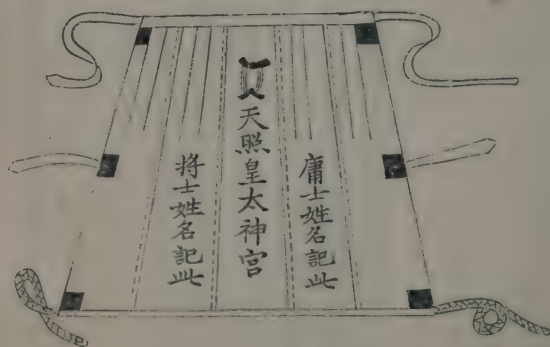 庸士姓名記此
天照皇太神宮
将士姓名記此